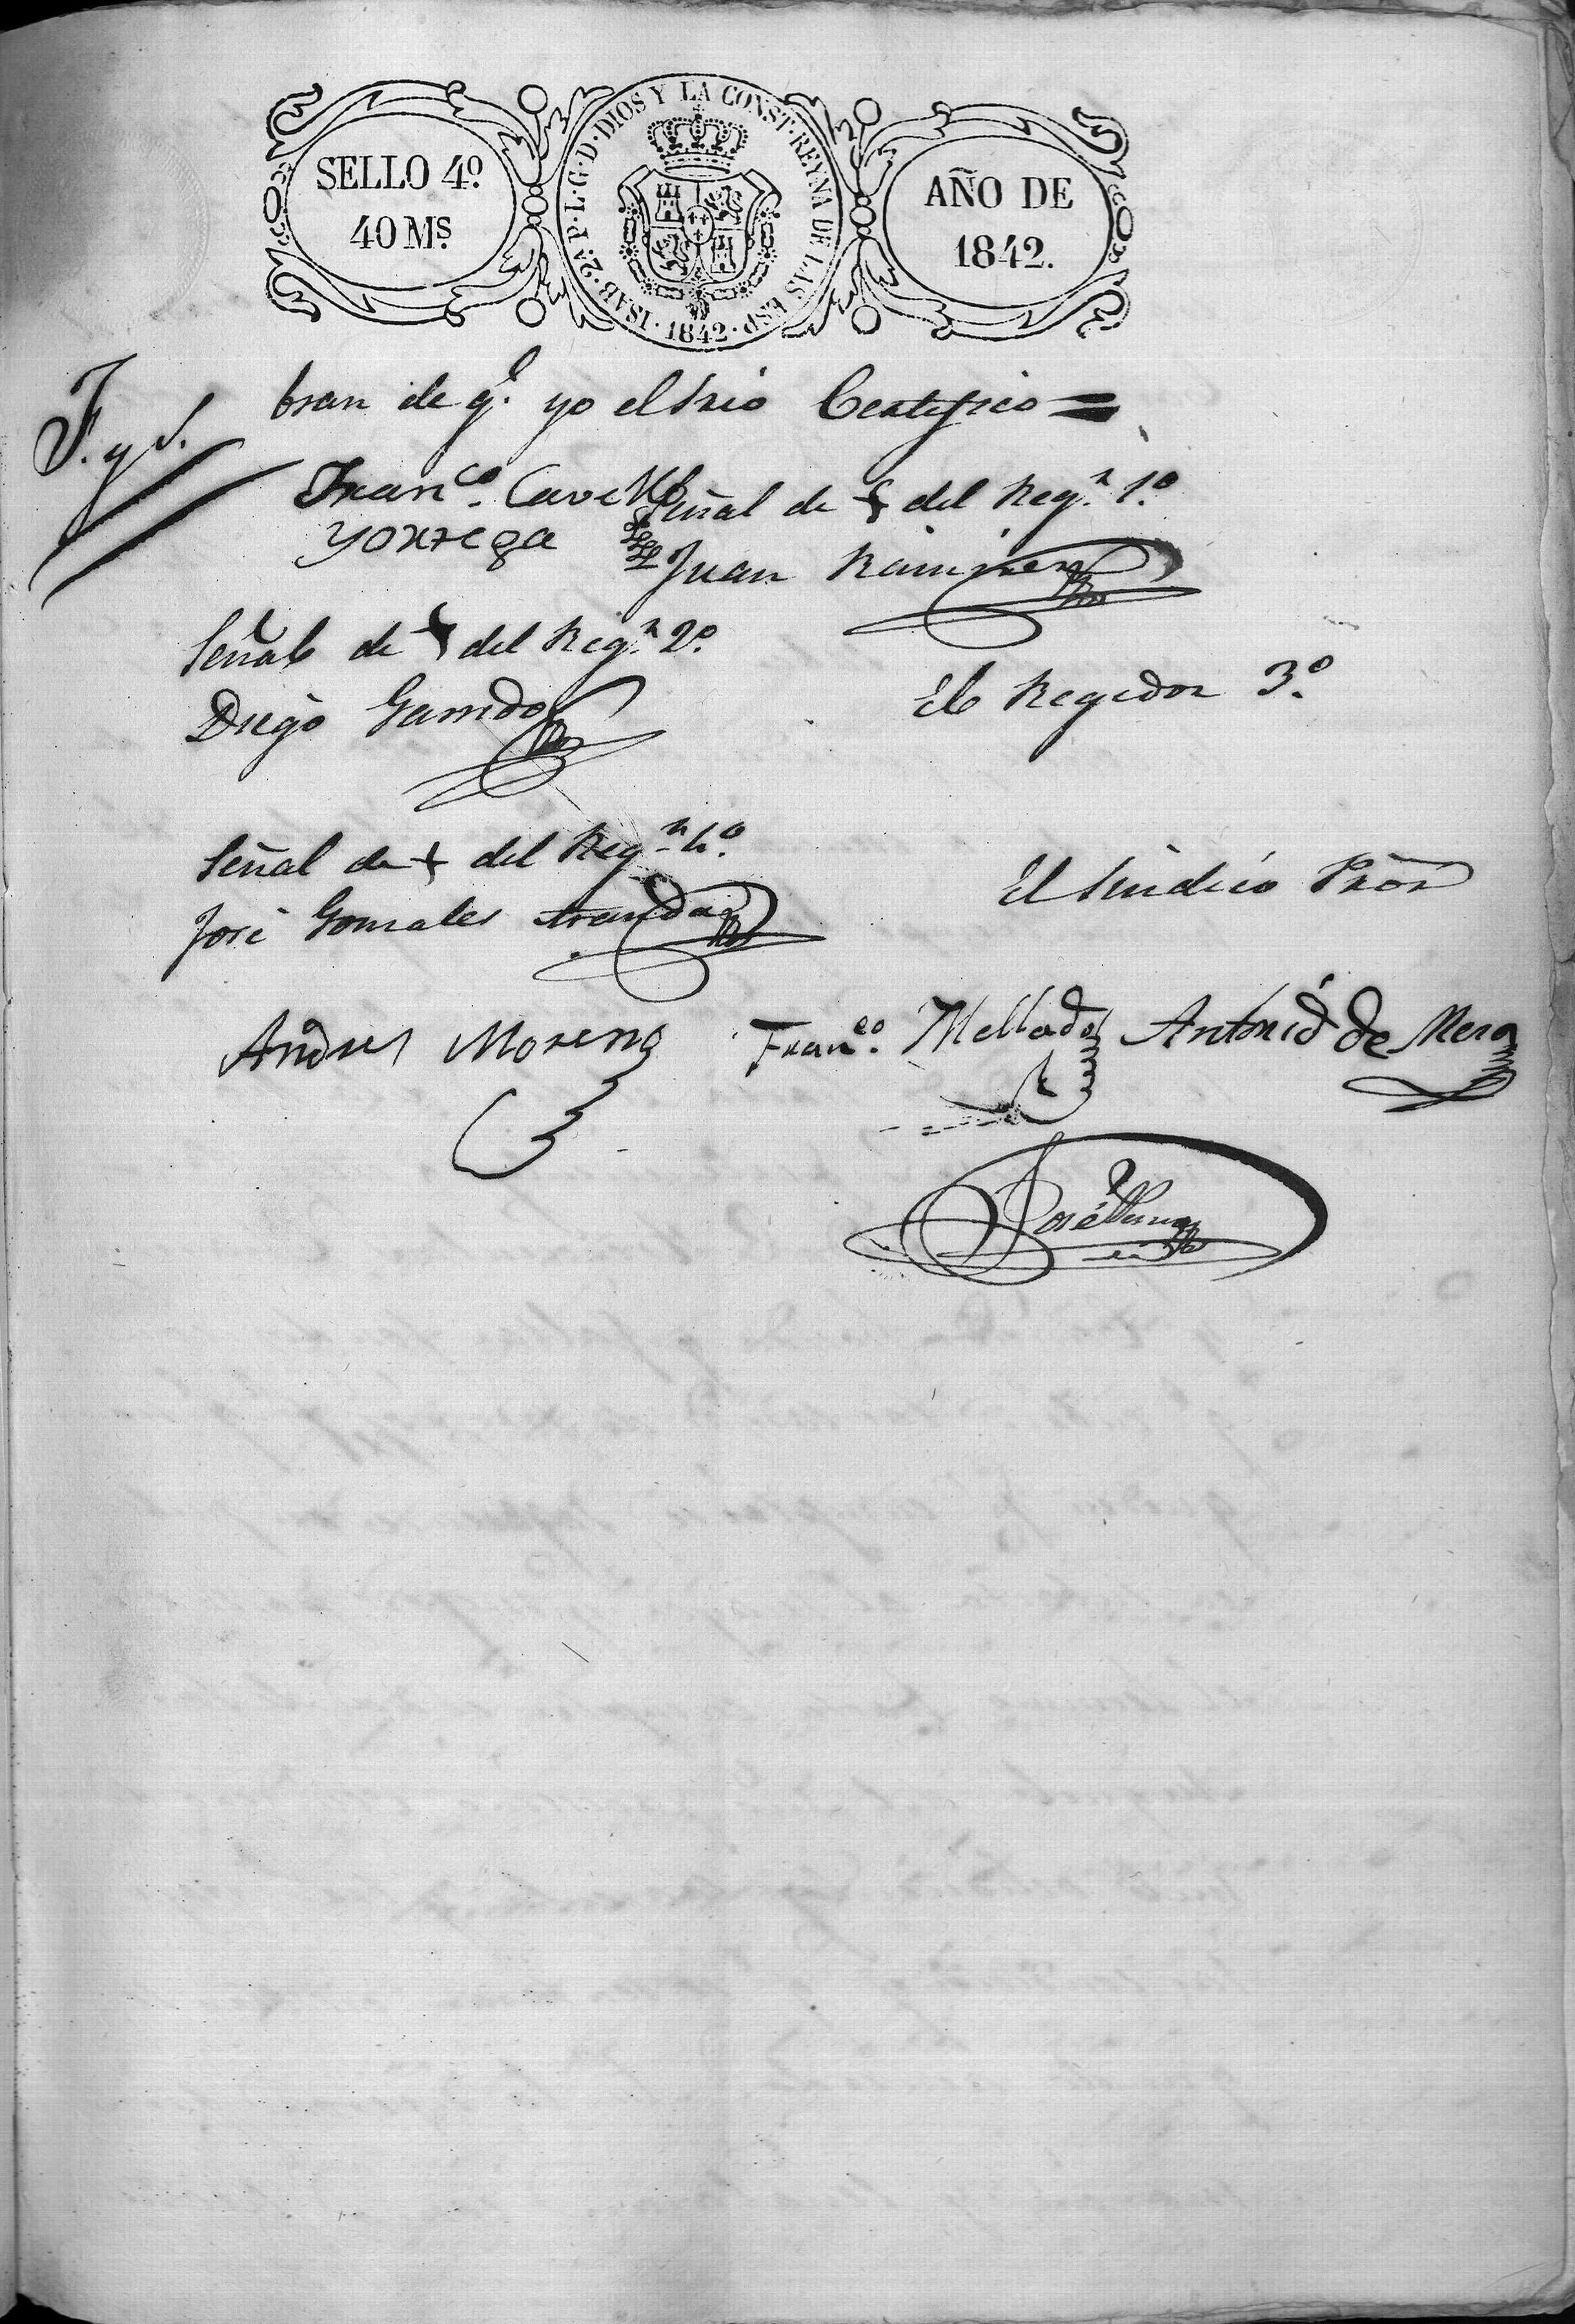 SELLO 4º
40 Mˢ
ISAB·2ª·P·L·G·D·DIOS Y LA CONST·REYNA DE LAS ESP·1842·
AÑO DE
1842.
F. y S.
bran de qᵉ. yo el Srio Certifico =
Franᶜᵒ. Cavello
Señal de + del Regʳ. 1º
Juan Ramirez
Señal de + del Regʳ. 2º
Diego Garrido
El Regidor 3º.
Señal de + del Regʳ. 4º.
José Gonzales Aranda
El Sindico Prõr
Andres Moreno
Franᶜᵒ. Mellado
Antonio de Mera
José